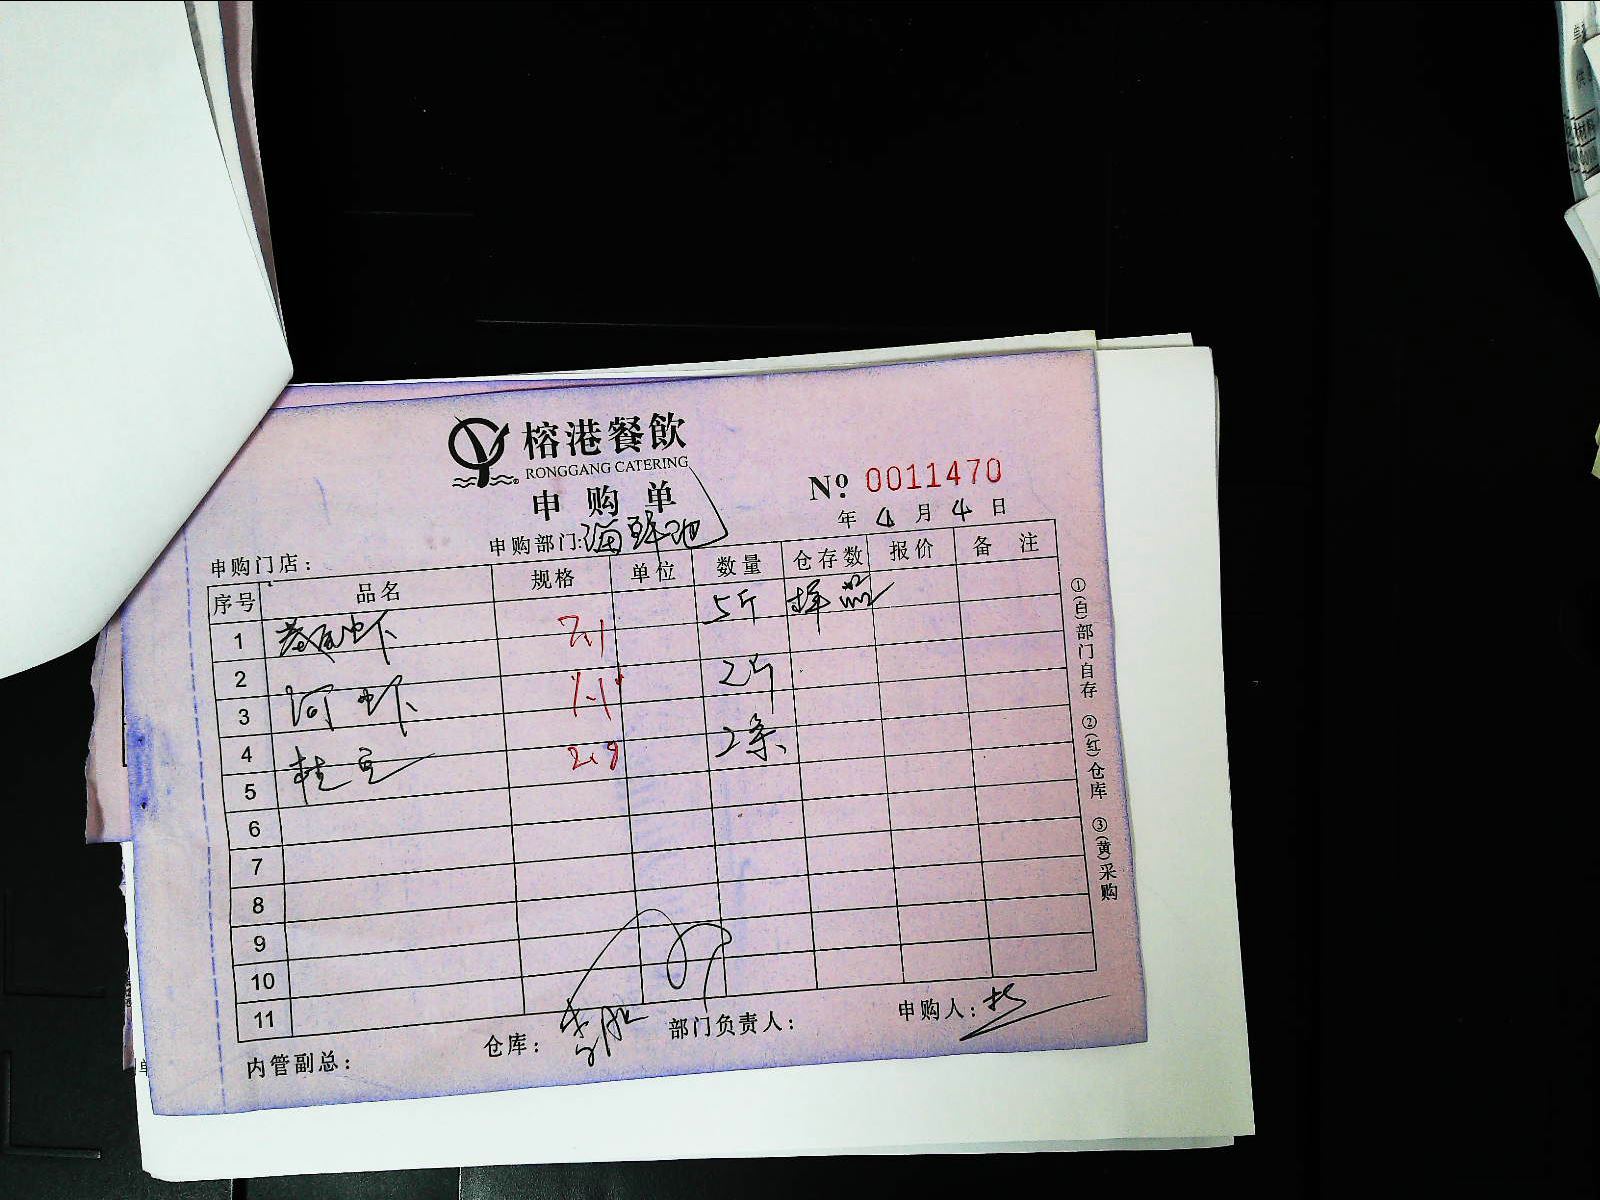 榕港餐飲
RONGGANG CATERING
申购单
№ 0011470
年 4 月 4 日
申购门店： 申购部门:海鲜池
序号 品名 规格 单位 数量 仓存数 报价 备注
1 基尾虾 7.1 5斤
2
3 河虾 1.1 2斤
4
5 桂 2.9 2条
6
7
8
9
10
11
内管副总： 仓库： 部门负责人： 申购人：
①(白)部门自存 ②(红)仓库 ③(黄)采购